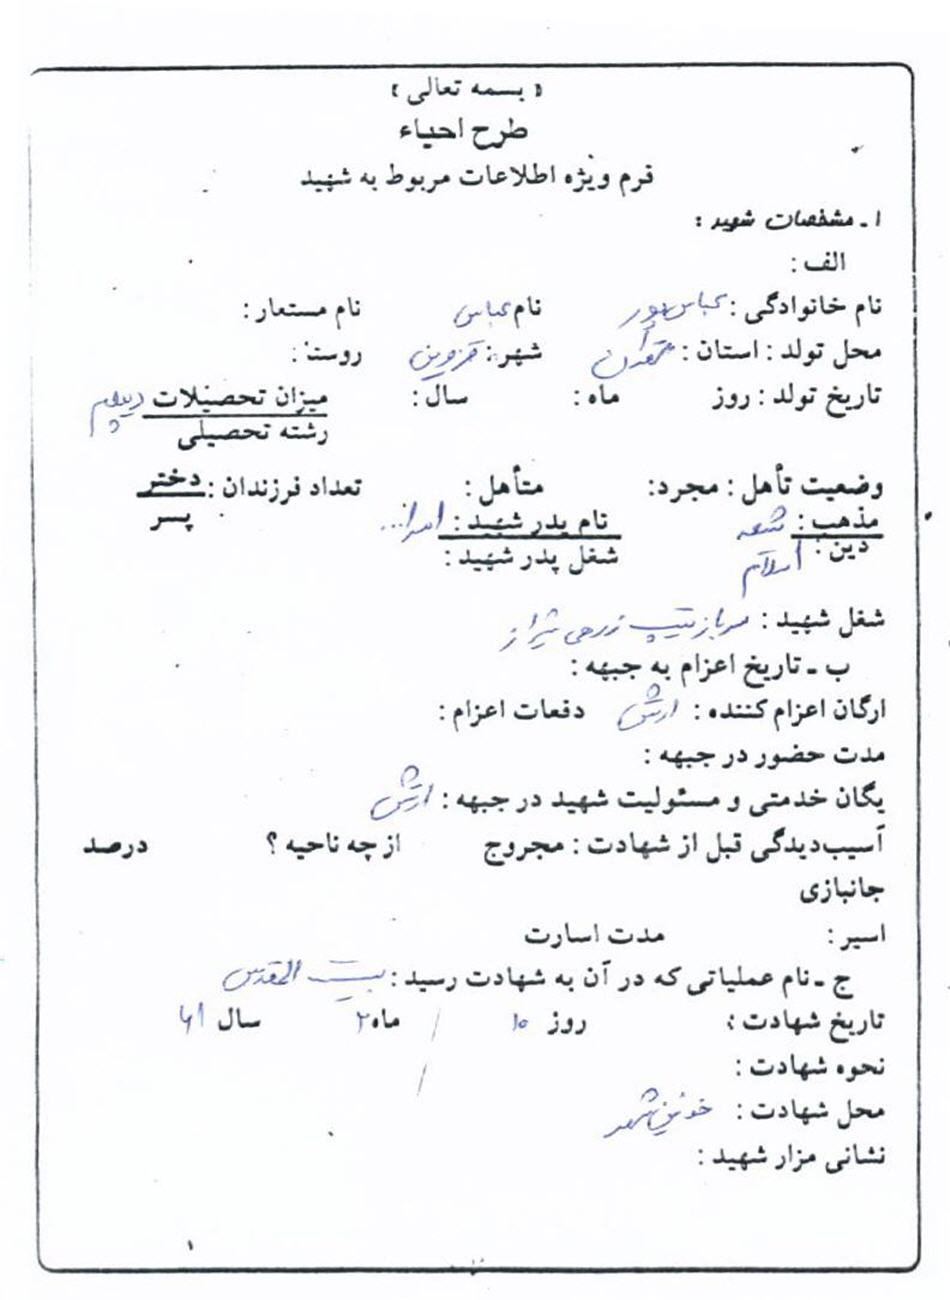 « بسمه تعالی »
طرح احیاء
فرم ویژه اطلاعات مربوط به شهید
۱ ـ مشخصات شهید :
الف :
نام خانوادگی : عباس پور نام عباس نام مستعار :
محل تولد : استان : تهران شهر : قزوین روستا :
تاریخ تولد : روز ماه : سال : میزان تحصیلات دیپلم
رشته تحصیلی
وضعیت تأهل : مجرد: متأهل : تعداد فرزندان : دختر
پسر
مذهب : شیعه نام پدر شهید :
دین : اسلام شغل پدر شهید :
شغل شهید : سرباز تیپ زرهی شیراز
ب ـ تاریخ اعزام به جبهه :
ارگان اعزام کننده : ارتش دفعات اعزام :
مدت حضور در جبهه :
یگان خدمتی و مسئولیت شهید در جبهه : ارتش
آسیب‌دیدگی قبل از شهادت : مجروح از چه ناحیه ؟ درصد
جانبازی
اسیر : مدت اسارت
ج ـ نام عملیاتی که در آن به شهادت رسید : بیت المقدس
تاریخ شهادت : روز ۱۰ ماه ۲ سال ۶۱
نحوه شهادت :
محل شهادت : خونین شهر
نشانی مزار شهید :
۱